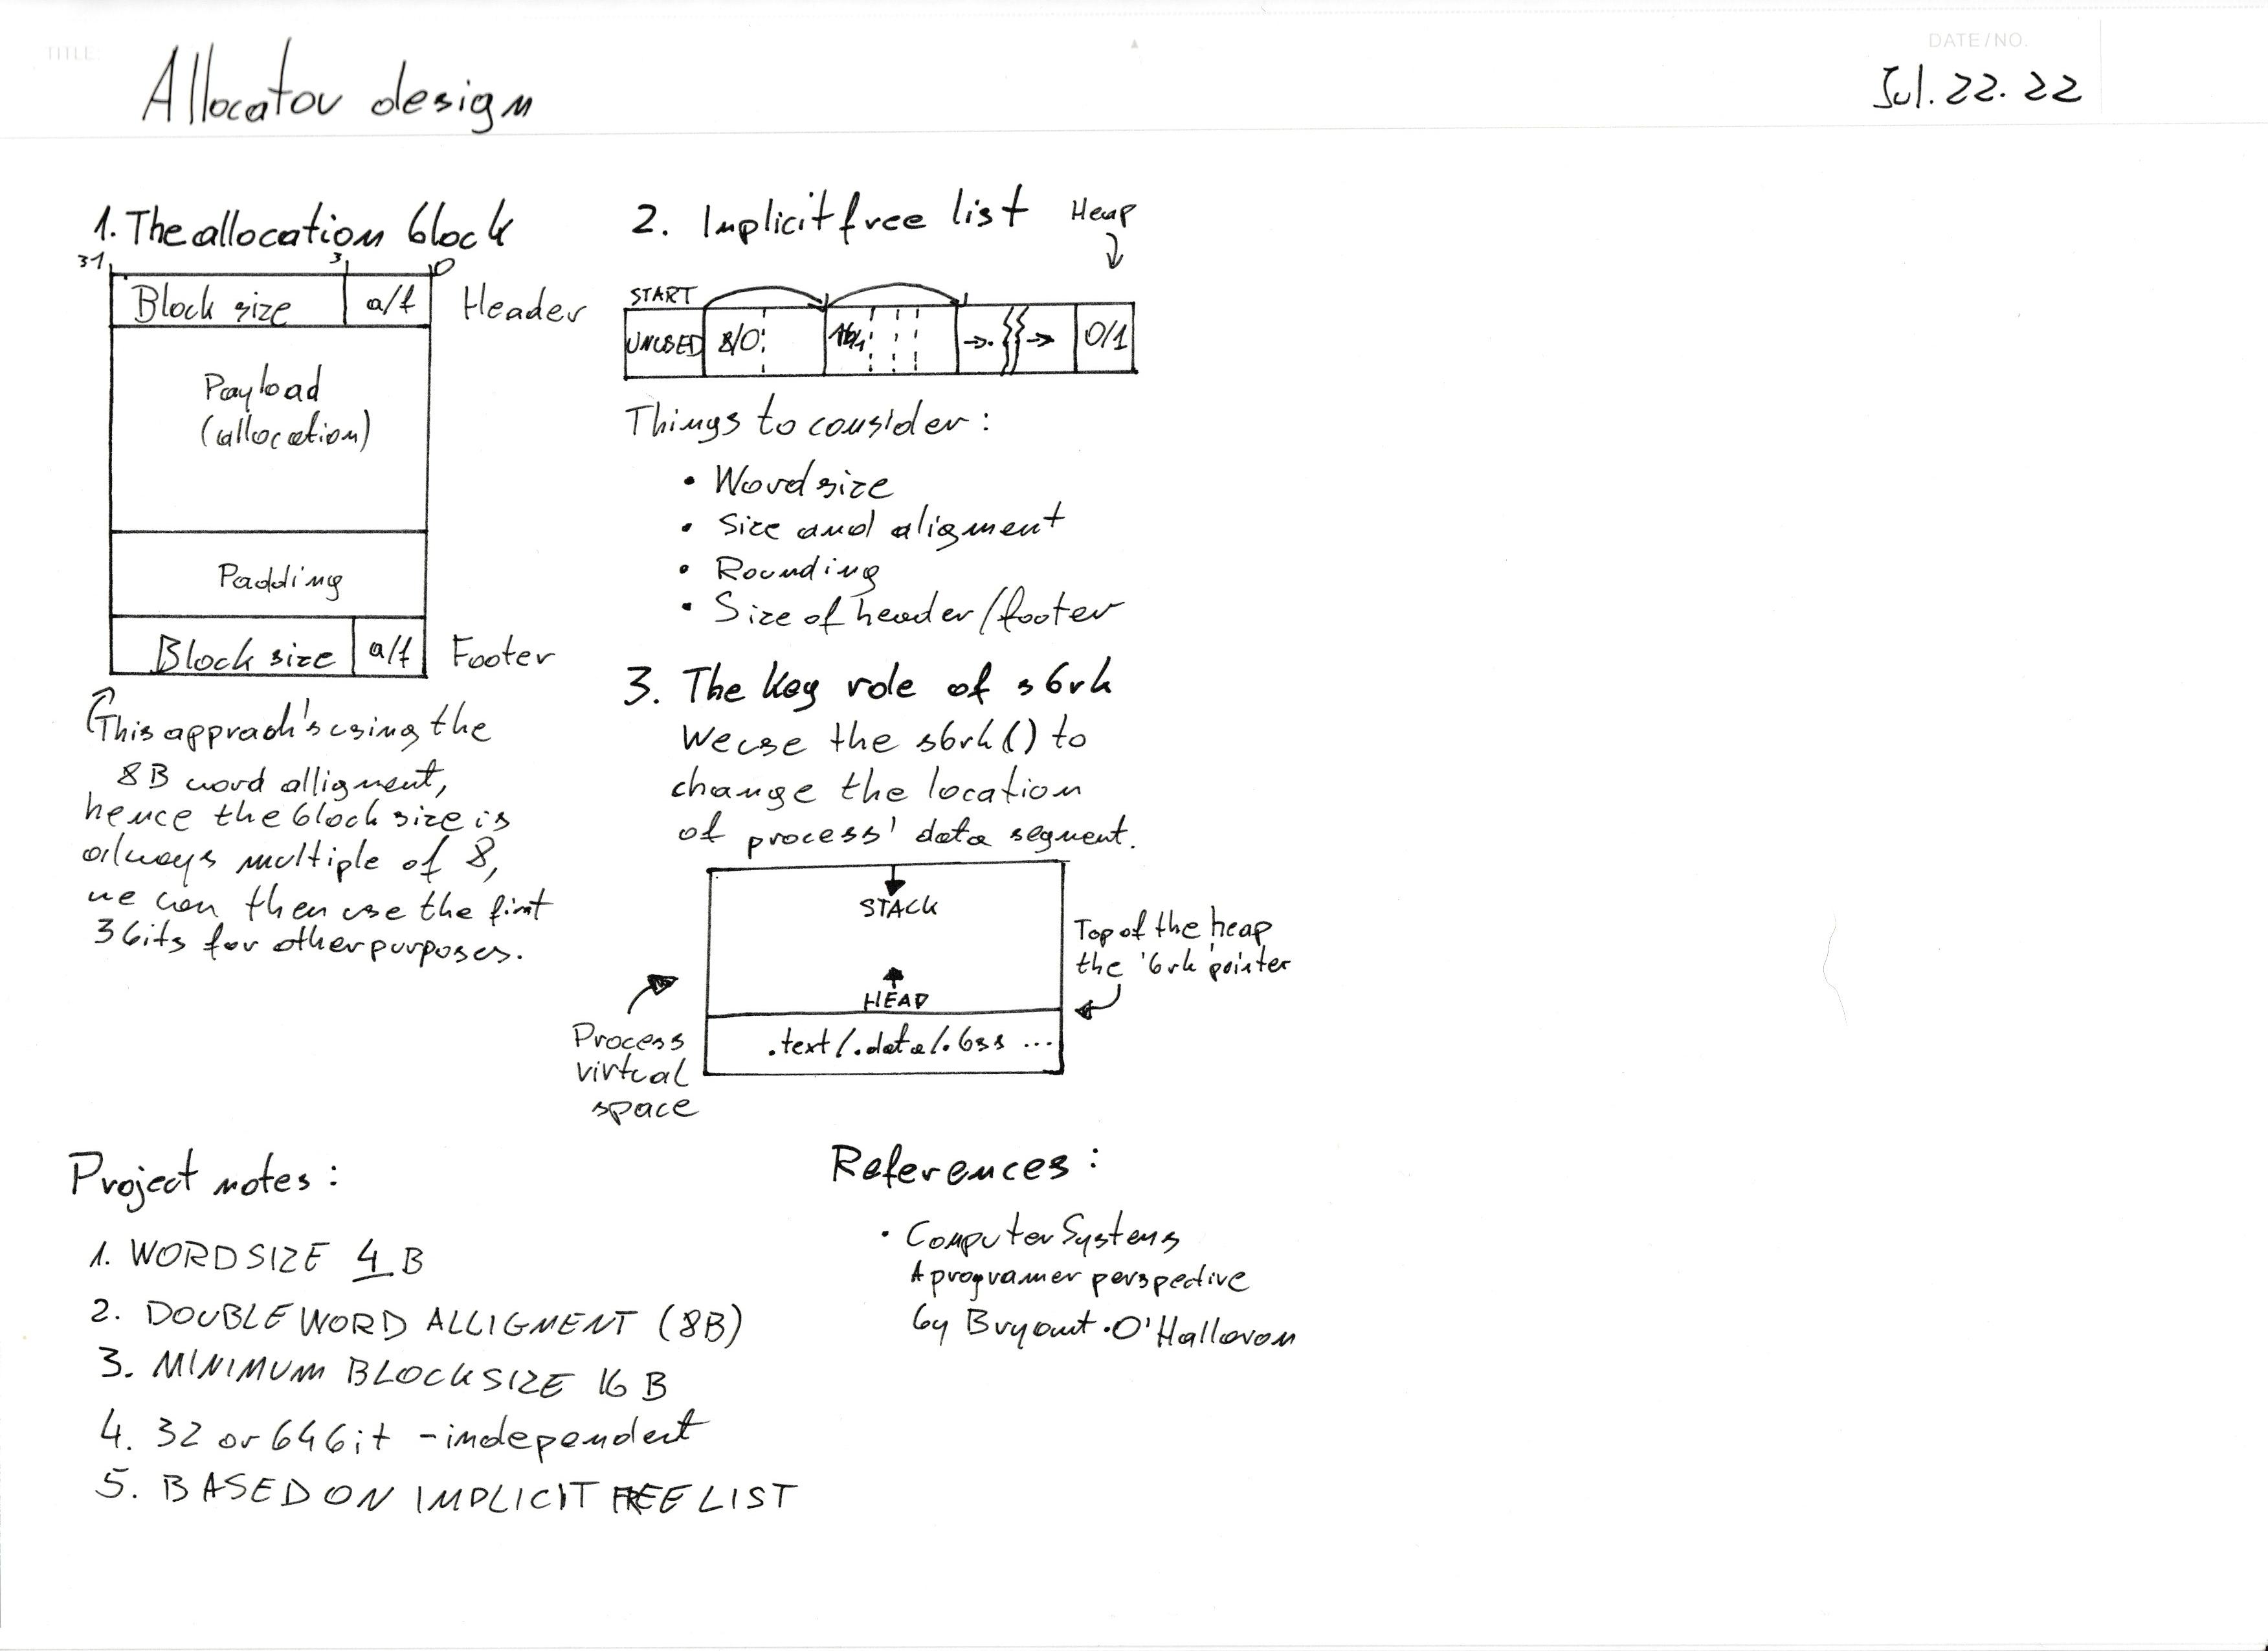 TITLE:
DATE/NO.
Allocator design
Jul. 22. 22
1. The allocation block
31 3 0
Block size a/f Header
Payload
(allocation)
Padding
Block size a/f Footer
This apprach's using the
8B word alligment,
hence the block size is
always multiple of 8,
we can then use the first
3 bits for other purposes.
2. Implicit free list
Heap
START
UNUSED 8/0 16/1 0/1
Things to consider:
• Word size
• Size and aligment
• Rounding
• Size of header/footer
3. The key role of sbrk
We use the sbrk() to
change the location
of process' data segment.
STACK
HEAP
.text/.data/.bss ...
Top of the heap
the 'brk' pointer
Process
virtual
space
Project notes:
1. WORD SIZE 4 B
2. DOUBLE WORD ALLIGMENT (8B)
3. MINIMUM BLOCK SIZE 16 B
4. 32 or 64 bit - independent
5. BASED ON IMPLICIT FREE LIST
References:
• Computer Systems
A programer perspective
by Bryant • O'Hallaron